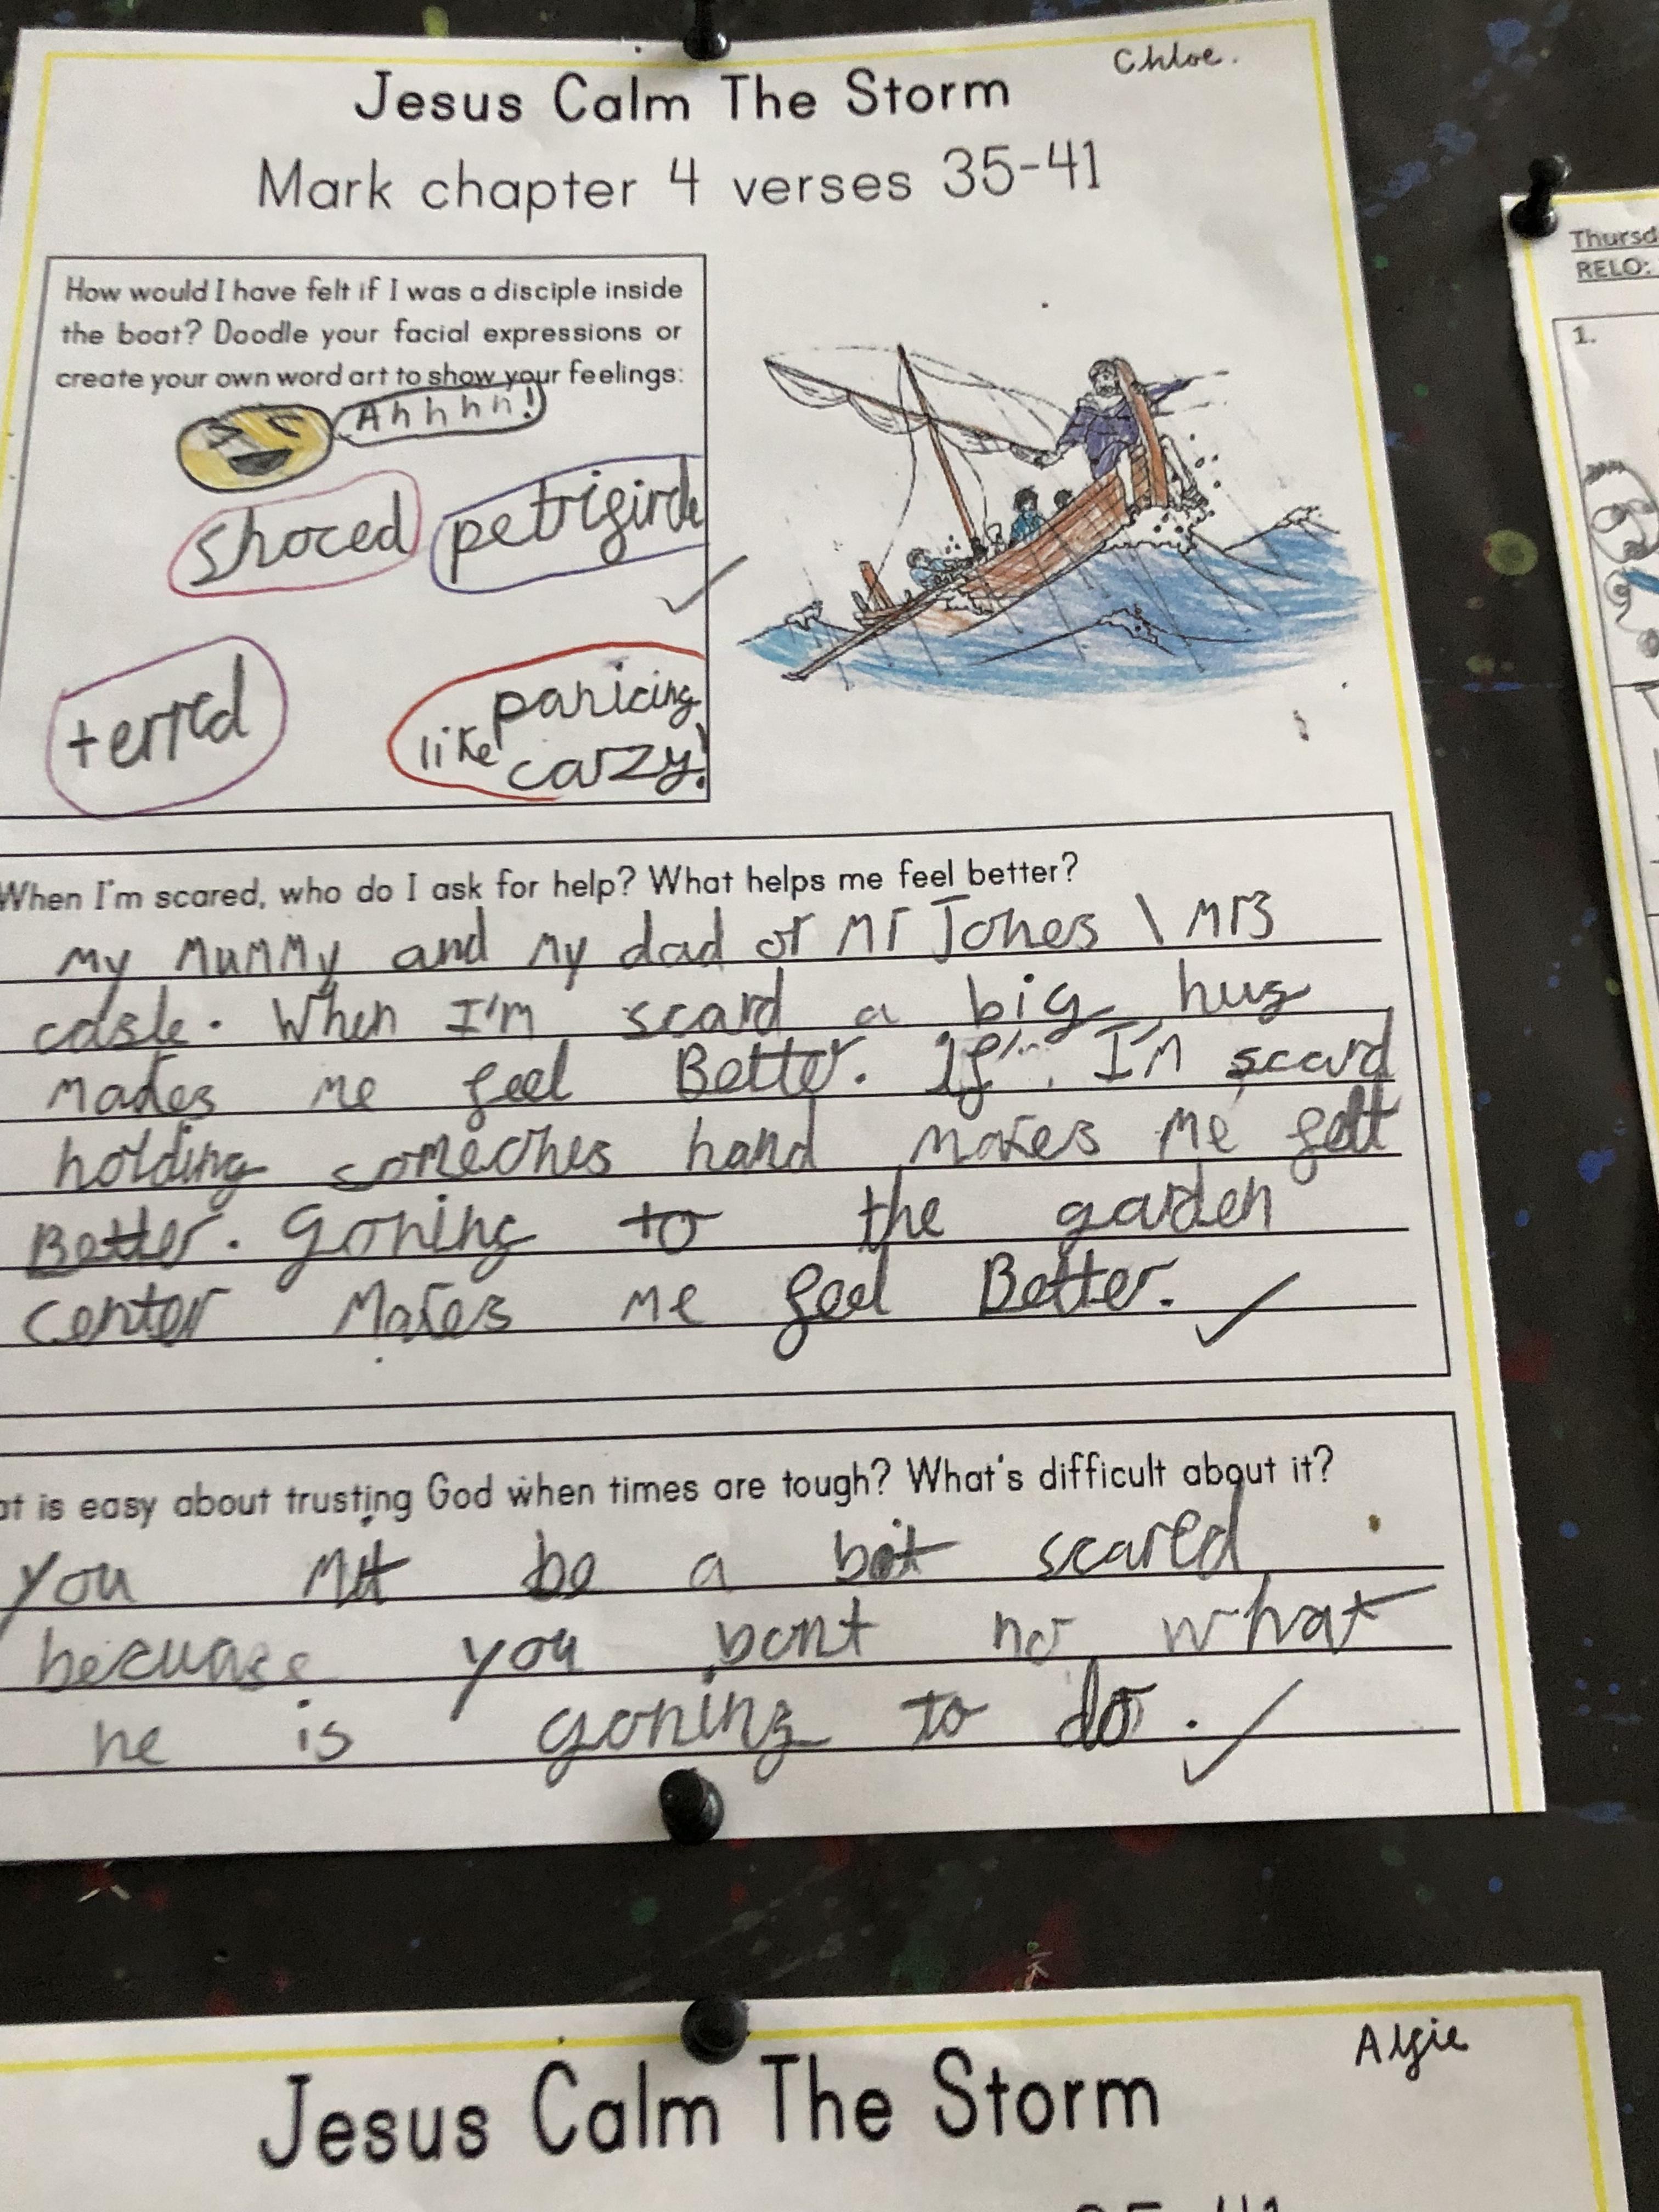 Chloe.
Jesus Calm The Storm
Mark chapter 4 verses 35-41
How would I have felt if I was a disciple inside
the boat? Doodle your facial expressions or
create your own word art to show your feelings:
Ahhhh!
shoced petrigirde
terred
panicing
like carzy!
When I'm scared, who do I ask for help? What helps me feel better?
my mummy and my dad or Mr Jones \ Mrs
casle. When I'm scard a big hug
makes me feel Better. If I'm scard
holding someones hand makes me felt
Better. goning to the garden
center makes me feel Better.
at is easy about trusting God when times are tough? What's difficult about it?
you mit be a bit scared
becuase you bont no what
he is goning to do.
Thursd
RELO:
1.
Algie
Jesus Calm The Storm
35-41